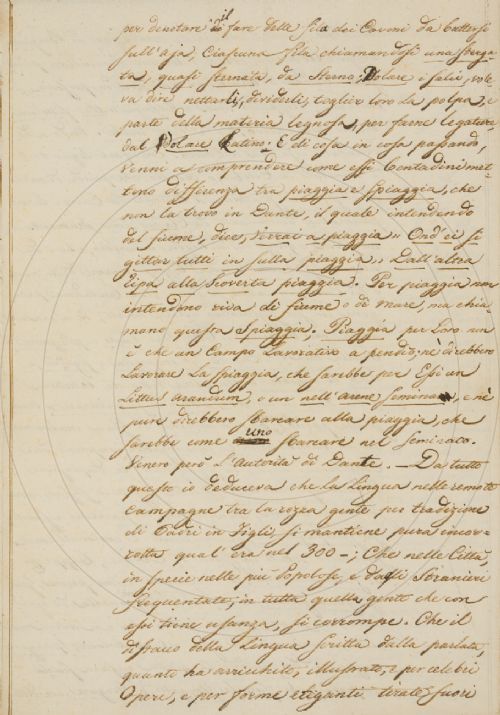 per denotare il fare delle fila dei Covoni da battersi
sull'aja, Ciascuna fila chiamandosi una sterna-
ta, quasi sternata, da Sterno; Dolare i salci, vole-
va dire nettarli, dividerli, toglier loro la polpa, e
parte della materia legnosa, per farne legature
dal Dolare Latino. E di cosa in cosa passando,
venni a comprendere come essi Contadini met-
tono differenza tra piaggia e Spiaggia, che
non la trovo in Dante, il quale intendendo
del fiume, dice, veccai a piaggia = Ond'ei si
gittar tutti in sulla piaggia,, Dall'altra
ripa alla Scoverta piaggia. Per piaggia non
intendono riva di fiume o di mare, ma chia-
mano questa Spiaggia. Piaggia per Loro non
è che un Campo Lavorativo a pendio; nè direbbero
Lavorare La Spiaggia, che sarebbe per Essi un
Littus arandum, o un nell'arene semina, e nè
pure direbbero sbarcare alla piaggia, che
sarebbe come uno sbarcare nel Seminato.
Venero però l'autorità di Dante. — Da tutto
questo io deduceva che la Lingua nelle remote
campagne tra la rozza gente per tradizione
di Padri in Figli, si mantiene pura incor-
rotta qual'era nel 300 -; Che nelle Città,
in specie nelle più Popolose, e dalli Stranieri
frequentate, in tutta quella gente che con
essi tiene usanza, si corrompe. Che il
distacco della Lingua scritta dalla parlata,
quanto ha arricchito, illustrato, e per celebri
Opere, e per forme eleganti tirate fuori